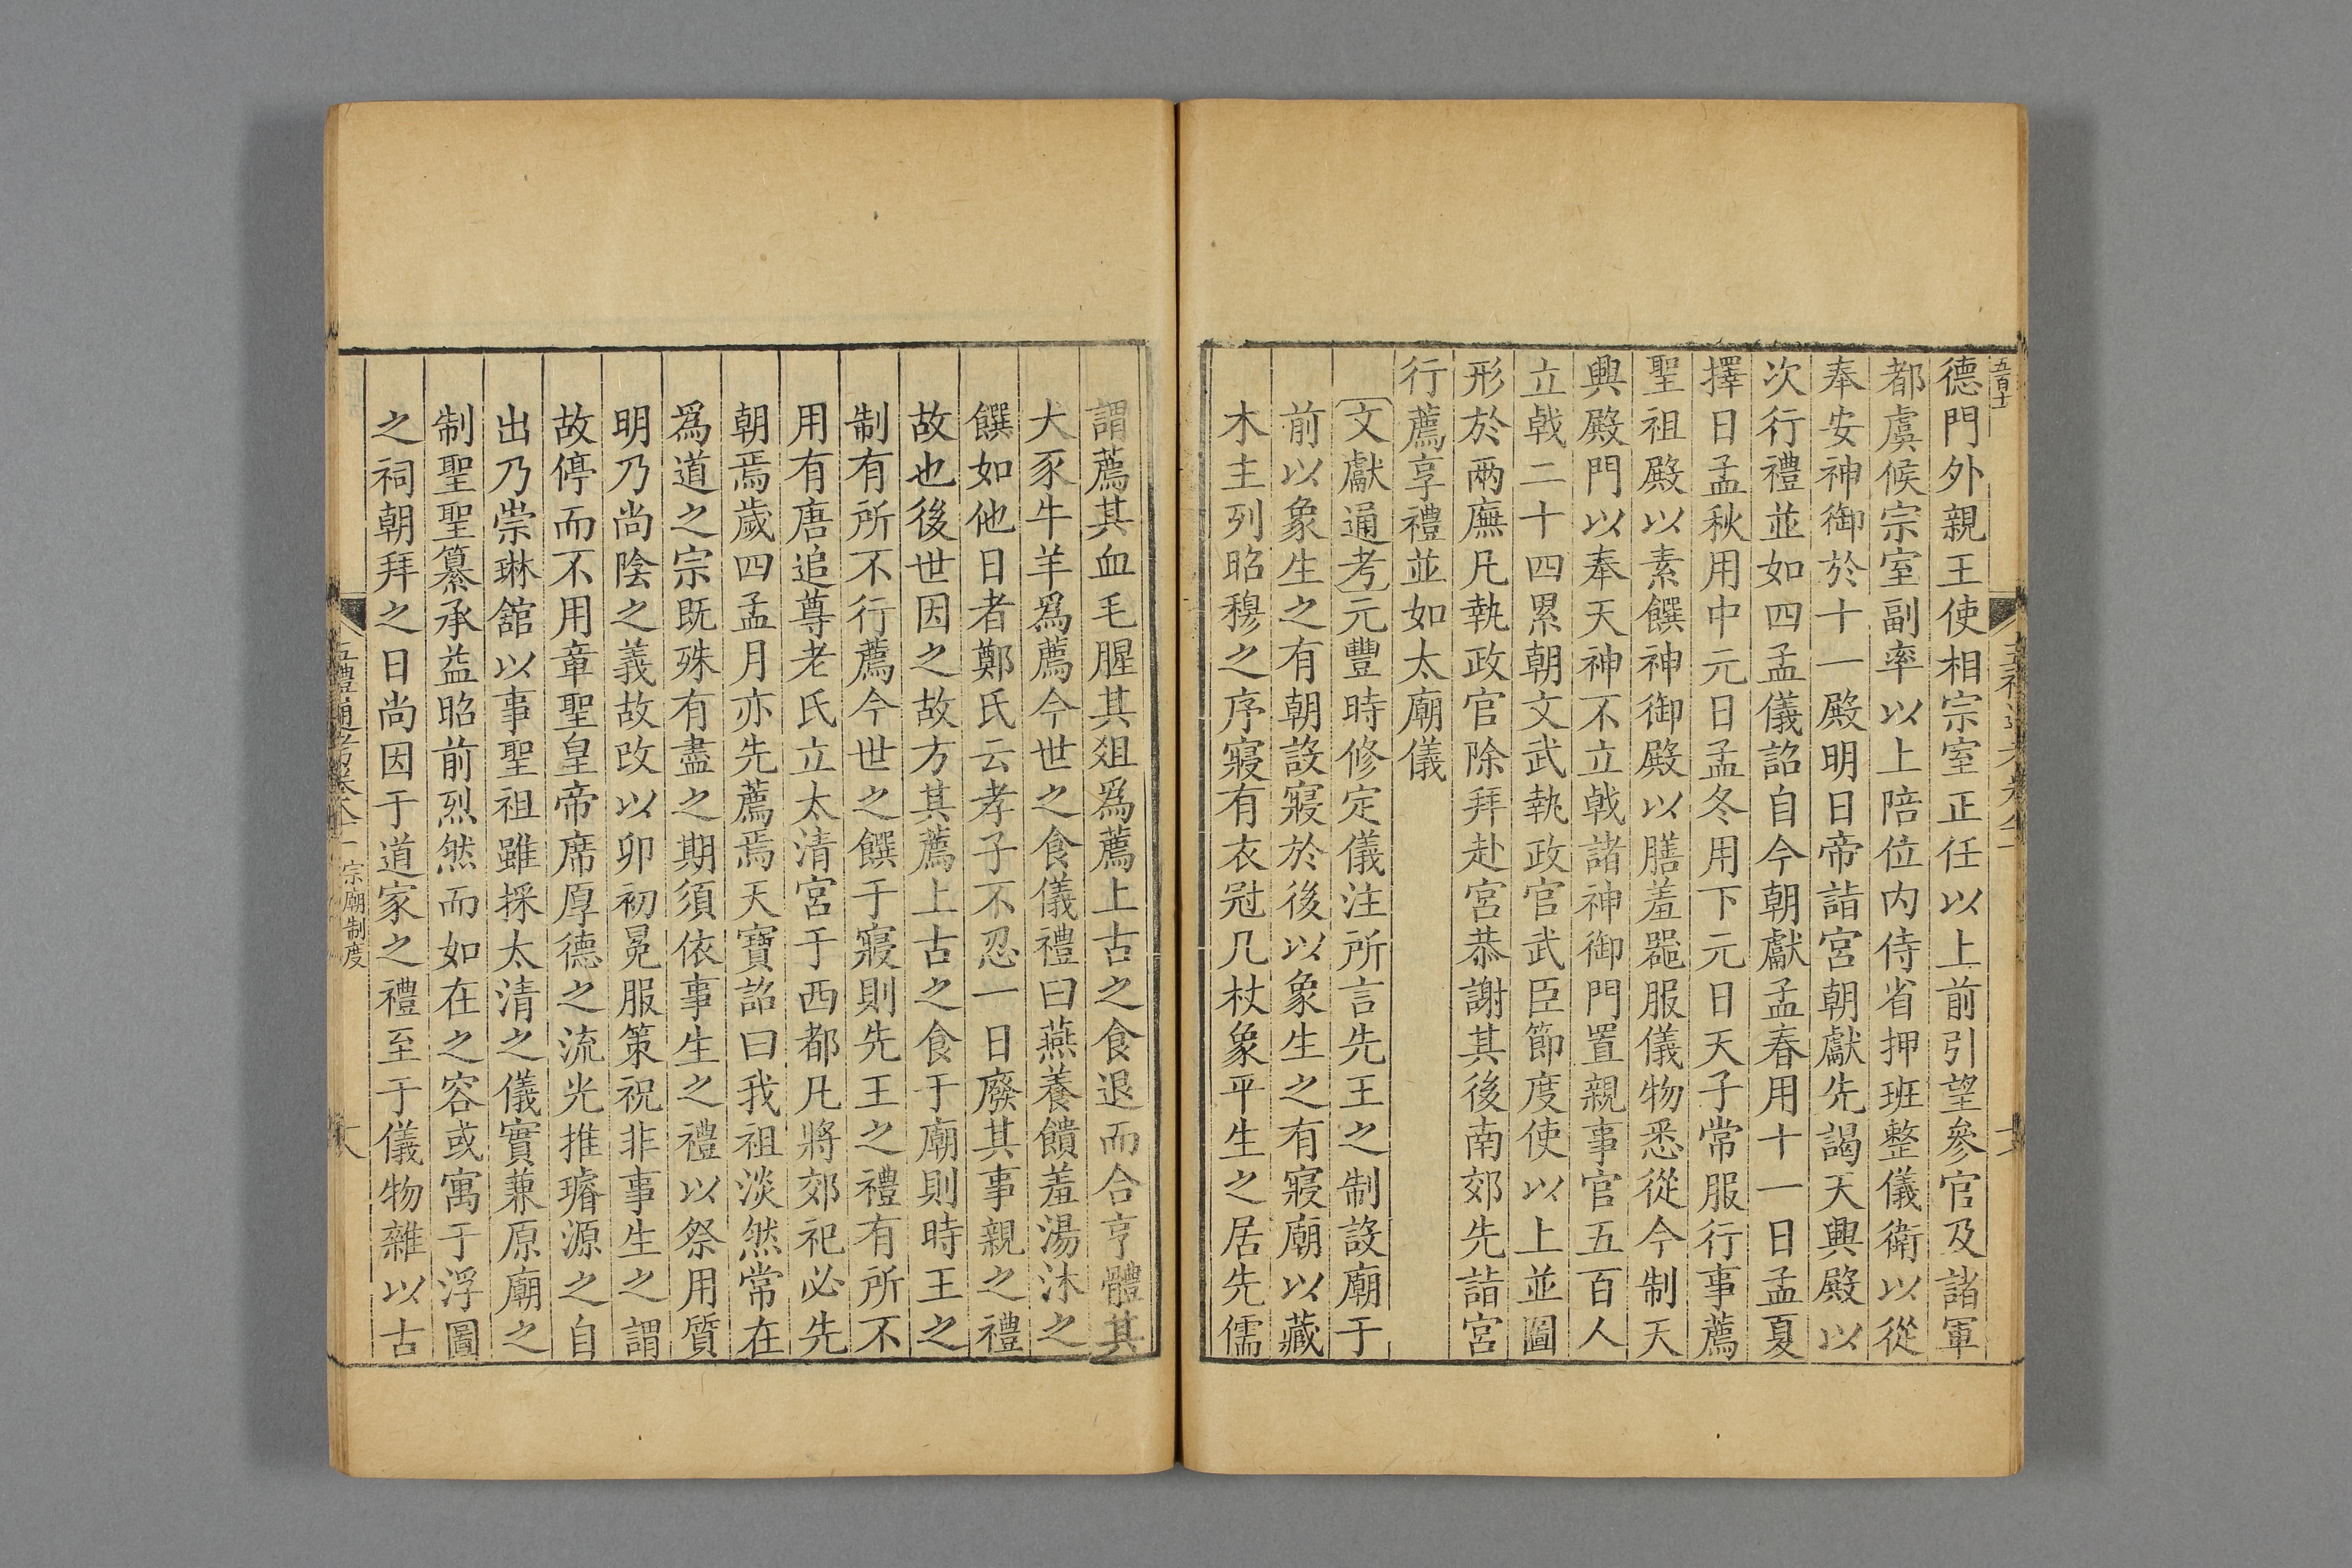 五百十
德門外親王使相宗室正任以上前引望參官及諸軍
都虞候宗室副率以上陪位内侍省押班整儀衛以從
奉安神御於十一殿明日帝詣宮朝獻先謁天興殿以
次行禮並如四孟儀詔自今朝獻孟春用十一日孟夏
擇日孟秋用中元日孟冬用下元日天子常服行事薦
聖祖殿以素饌神御殿以膳羞器服儀物悉從今制天
興殿門以奉天神不立戟諸神御門置親事官五百人
立戟二十四累朝文武執政官武臣節度使以上並圖
形於兩廡凡執政官除拜赴宮恭謝其後南郊先詣宮
行薦享禮並如太廟儀
文獻通考元豐時修定儀注所言先王之制設廟于
前以象生之有朝設寢於後以象生之有寢廟以藏
木主列昭穆之序寢有衣冠几杖象平生之居先儒
謂薦其血毛腥其俎爲薦上古之食退而合亨體其
犬豕牛羊爲薦今世之食儀禮曰燕養饋羞湯沐之
饌如他日者鄭氏云孝子不忍一日廢其事親之禮
故也後世因之故方其薦上古之食于廟則時王之
制有所不行薦今世之饌于寢則先王之禮有所不
用有唐追尊老氏立太清宮于西都凡將郊祀必先
朝焉歲四孟月亦先薦焉天寶詔曰我祖淡然常在
爲道之宗既殊有盡之期須依事生之禮以祭用質
明乃尚陰之義故改以卯初冕服策祝非事生之謂
故停而不用章聖皇帝席厚德之流光推璿源之自
出乃崇琳館以事聖祖雖採太清之儀實兼原廟之
制聖聖纂承益昭前烈然而如在之容或寓于浮圖
之祠朝拜之日尚因于道家之禮至于儀物雜以古
五禮通考卷 宗廟制度